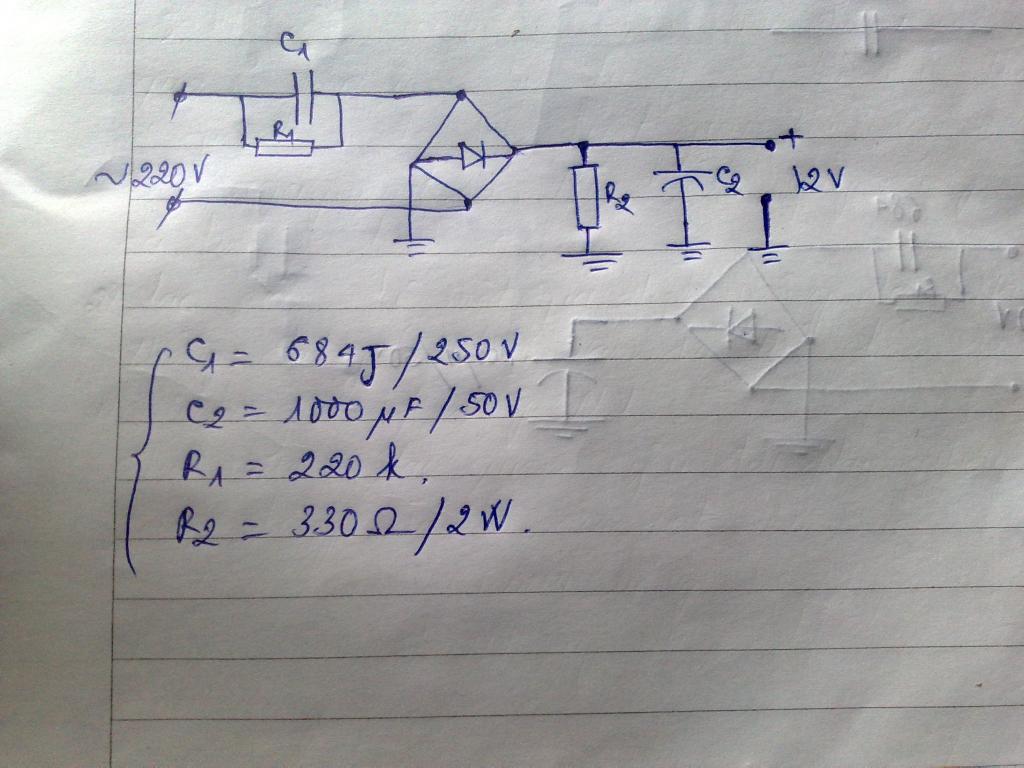 C1
R1
~220V
+
R2
C2
12V
C1 = 684J/250V
C2 = 1000µF/50V
R1 = 220k.
R2 = 330Ω/2W.